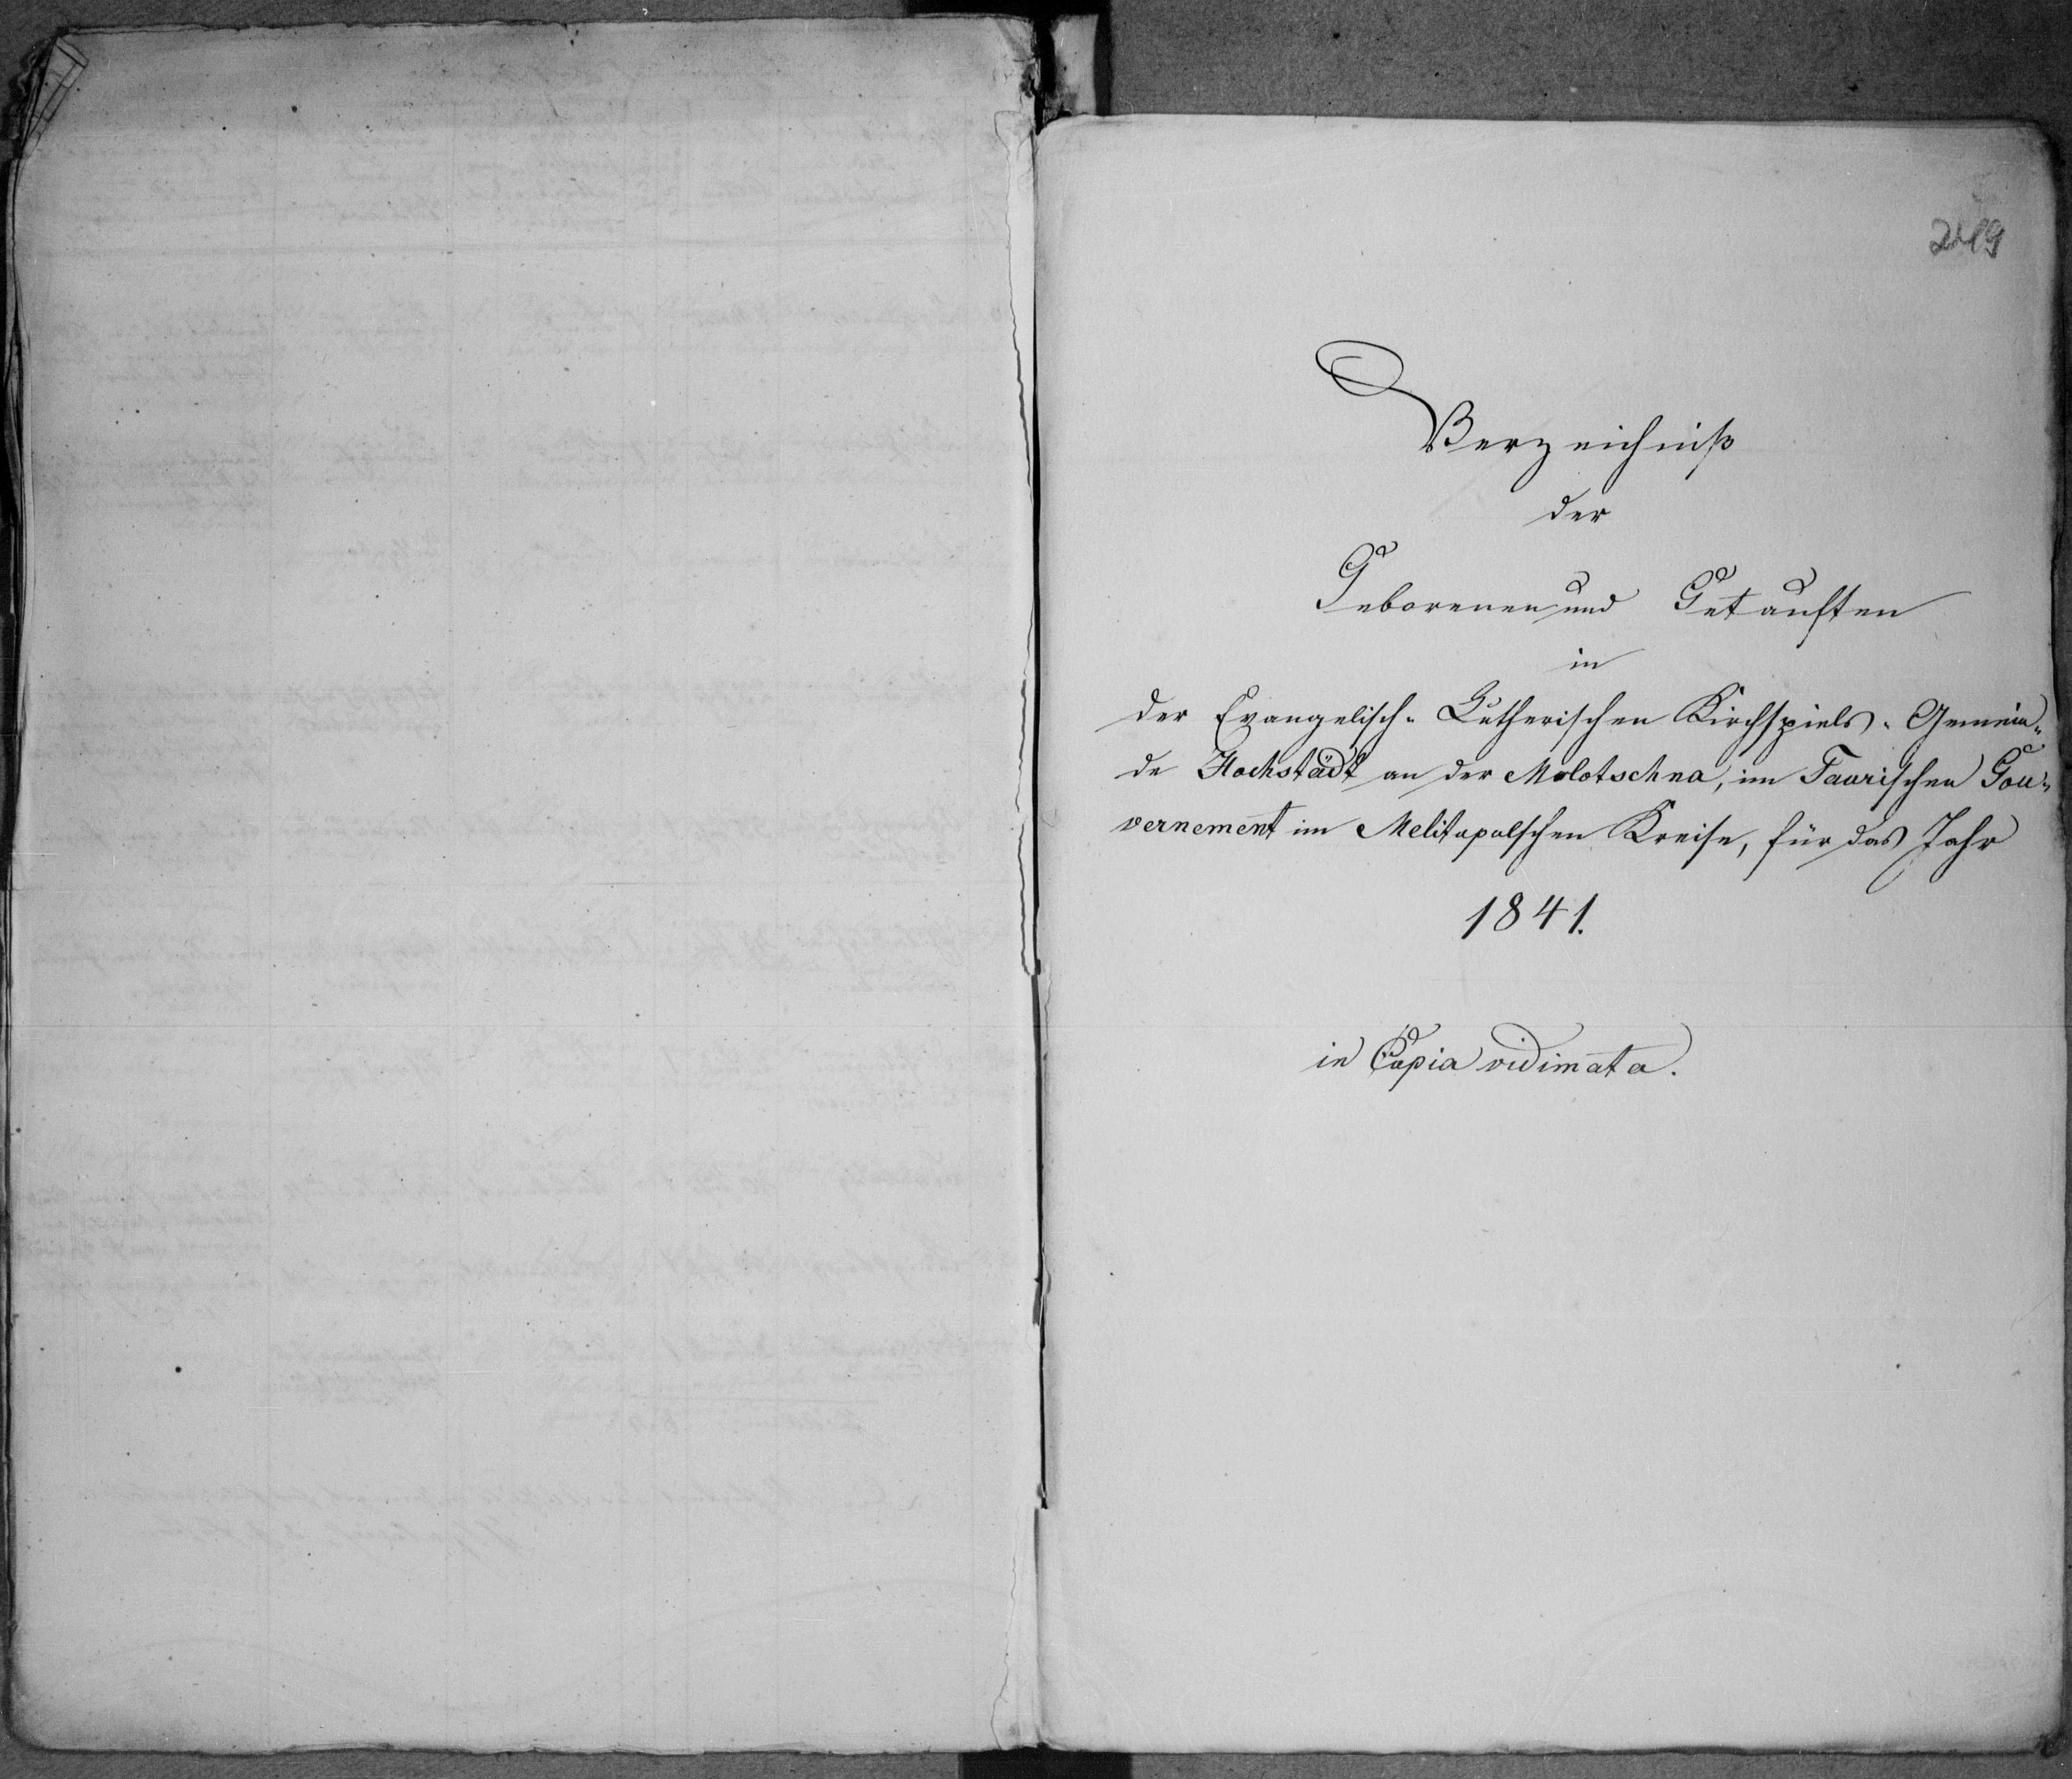 249
Verzeichniß
der
Geborenen und Getauften
in
der Evangelisch-Lutherischen Kirchspiels-Gemein-
de Hochstädt an der Molotschna, im Taurischen Gou-
vernement im Melitopolschen Kreise, für das Jahr
1841.
in Copia vidimata.